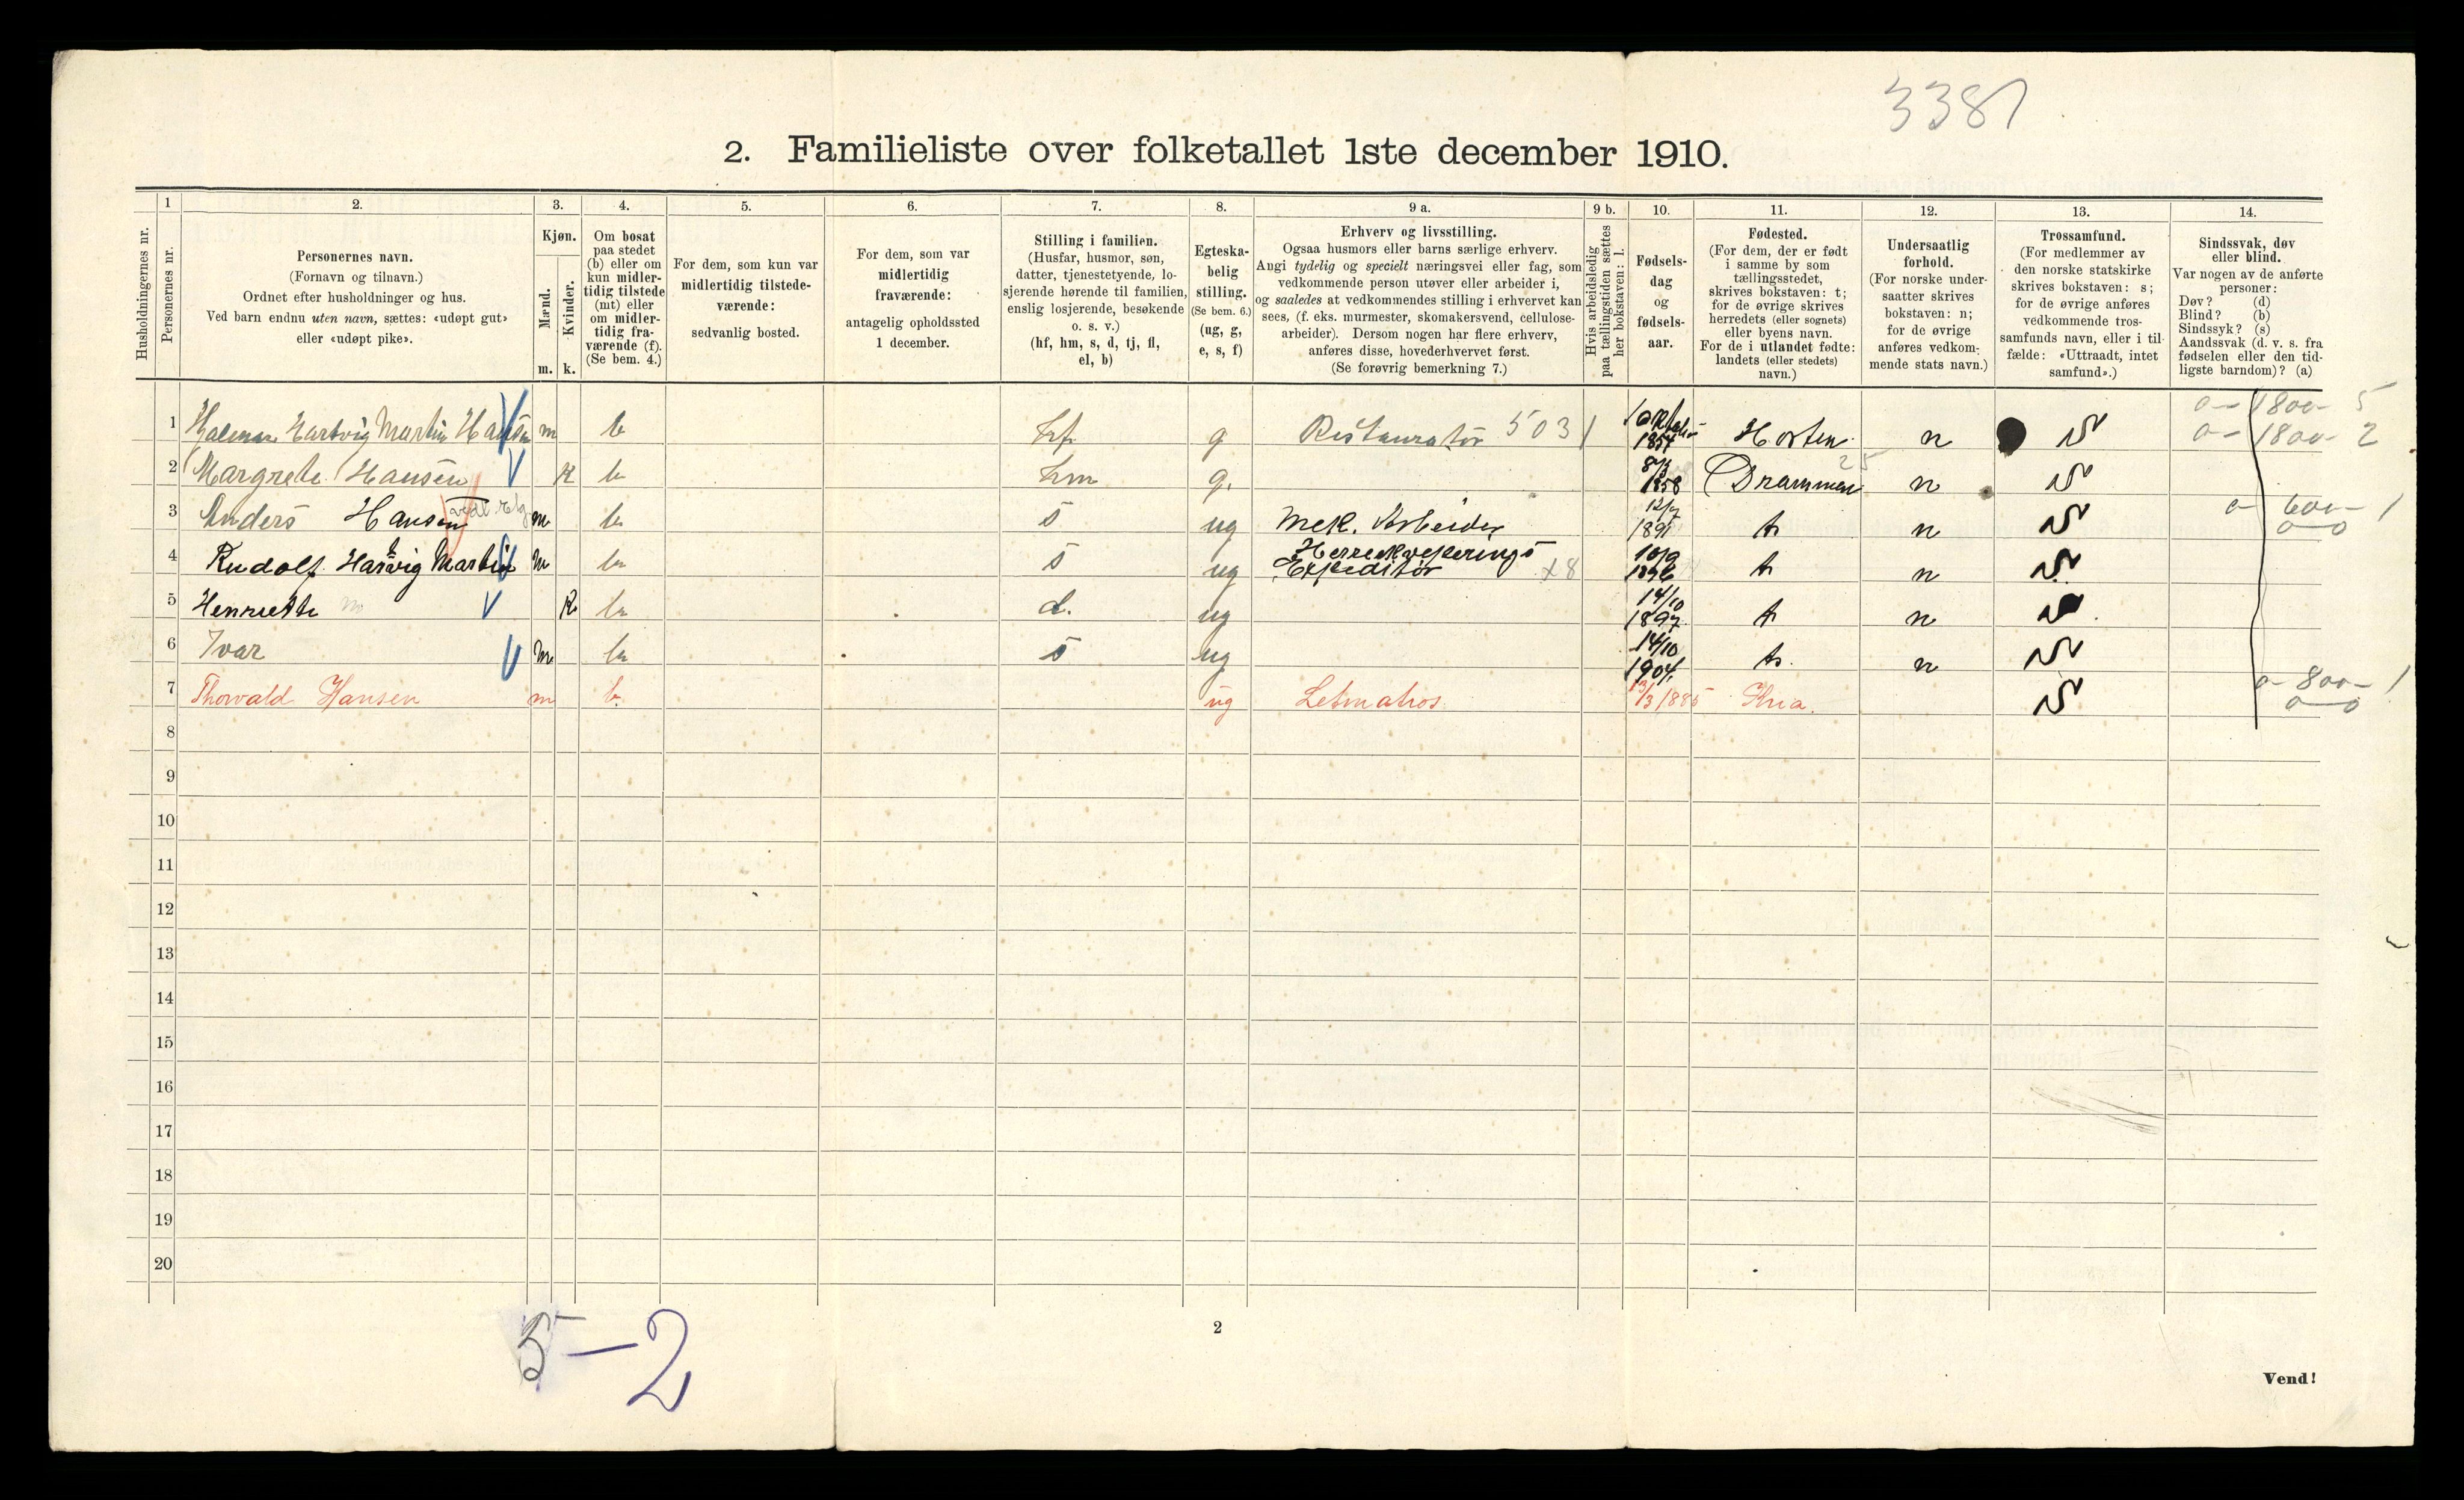 3387
2. Familieliste over folketallet 1ste december 1910.
Husholdningernes nr.
1
Personernes nr.
2.
Personernes navn.
(Fornavn og tilnavn.)
Ordnet efter husholdninger og hus.
Ved barn endnu uten navn, sættes: «udøpt gut»
eller «udøpt pike».
3.
Kjøn.
Mænd.
Kvinder.
m. k.
4.
Om bosat
paa stedet
(b) eller om
kun midler-
tidig tilstede
(mt) eller
om midler-
tidig fra-
værende (f).
(Se bem. 4.)
5.
For dem, som kun var
midlertidig tilstede-
værende:
sedvanlig bosted.
6.
For dem, som var
midlertidig
fraværende:
antagelig opholdssted
1 december.
7.
Stilling i familien.
(Husfar, husmor, søn,
datter, tjenestetyende, lo-
sjerende hørende til familien,
enslig losjerende, besøkende
o. s. v.)
(hf, hm, s, d, tj, fl,
el, b)
8.
Egteska-
belig
stilling.
(Se bem. 6.)
(ug, g,
e, s, f)
9 a.
Erhverv og livsstilling.
Ogsaa husmors eller barns særlige erhverv.
Angi tydelig og specielt næringsvei eller fag, som
vedkommende person utøver eller arbeider i,
og saaledes at vedkommendes stilling i erhvervet kan
sees, (f. eks. murmester, skomakersvend, cellulose-
arbeider). Dersom nogen har flere erhverv,
anføres disse, hovederhvervet først.
(Se forøvrig bemerkning 7.)
9 b.
Hvis arbeidsledig
paa tællingstiden sættes
her bokstaven: l.
10.
Fødsels-
dag
og
fødsels-
aar.
11.
Fødested.
(For dem, der er født
i samme by som
tællingsstedet,
skrives bokstaven: t;
for de øvrige skrives
herredets (eller sognets)
eller byens navn.
For de i utlandet fødte:
landets (eller stedets)
navn.)
12.
Undersaatlig
forhold.
(For norske under-
saatter skrives
bokstaven: n;
for de øvrige
anføres vedkom-
mende stats navn.)
13.
Trossamfund.
(For medlemmer av
den norske statskirke
skrives bokstaven: s;
for de øvrige anføres
vedkommende tros-
samfunds navn, eller i til-
fælde: «Uttraadt, intet
samfund».)
14.
Sindssvak, døv
eller blind.
Var nogen av de anførte
personer:
Døv? (d)
Blind? (b)
Sindssyk? (s)
Aandssvak (d. v. s. fra
fødselen eller den tid-
ligste barndom)? (a)
1 Hjalmar Hartvig Martin Hansen m b hf g Restauratør 503 1 1854 Horten n s 1800 - 5
1800 - 2
2 Margrete Hansen k b hm g. 8/3 1858 Drammen 25 n s
3 Anders Hansen m b s ug Mek. Arbeider 12/7 1891 t n s 600 - 1
4 Rudolf Hartvig Martin m b s ug Herreekviperings
Expeditør x8 10/9 1896 t n s
5 Henriette k b d. ug 14/10 1897 t n s
6 Ivar m b s ug 14/10 1904 t. n s
7 Thorvald Hansen m b. ug Letmatros 13/3 1885 s 800 - 1
8
9
10
11
12
13
14
15
16
17
18
19
20
5 - 2
2
Vend!